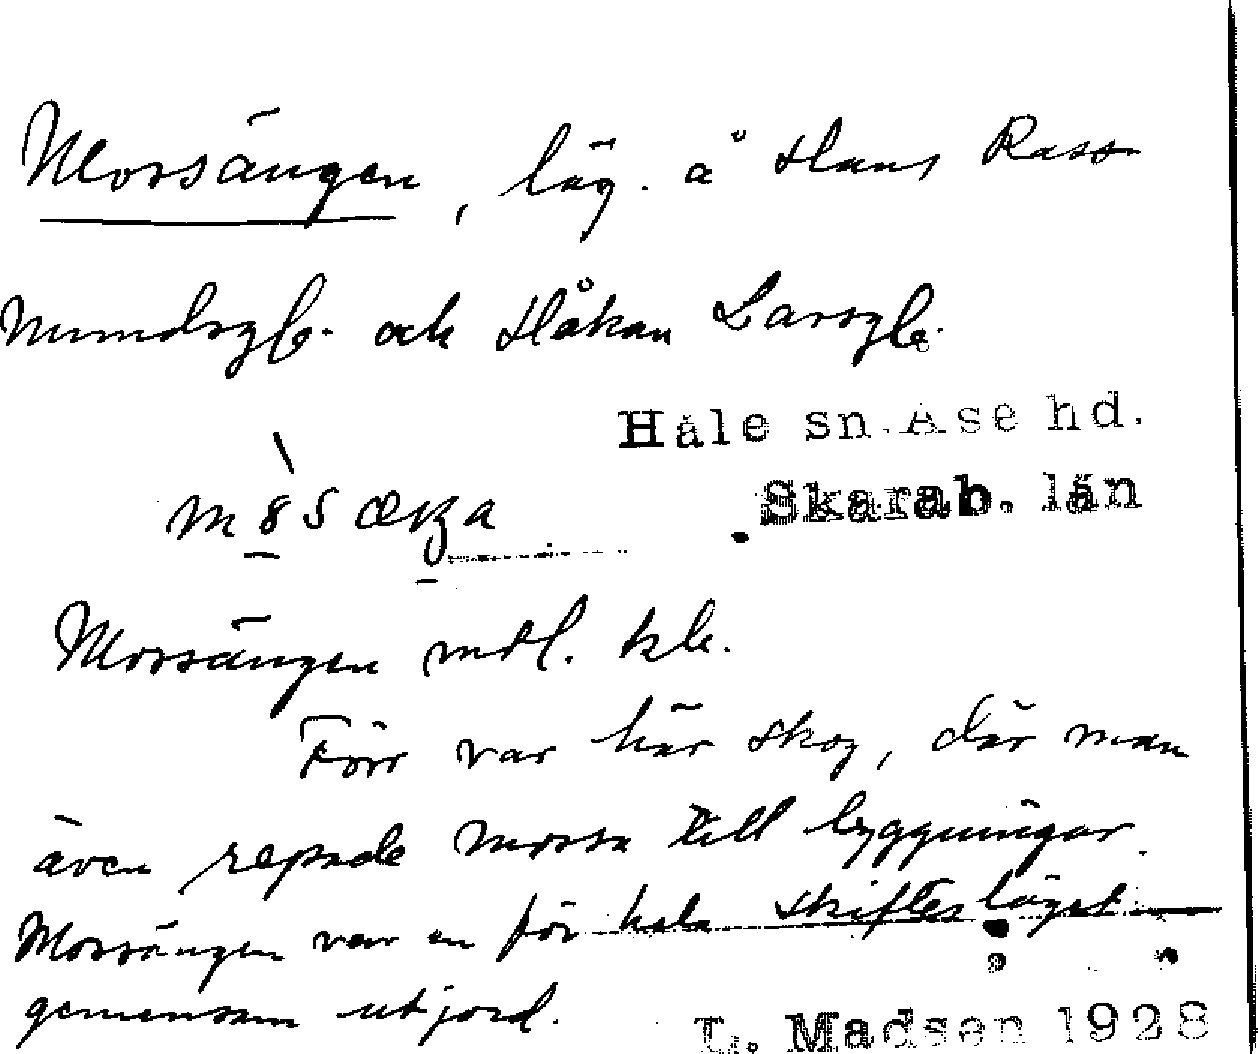 Morsängen, läg. å Hans Rass
mundsgb. och Håkan Larsgb.
Håle sn. Åse hd.
Skarab. län
Morsängen mdl. kb.
Förr var här skog, där man
även repade mossa till byggningar.
Morsängen var en för hela skifteslaget
gemensam utjord.
L. Madsen 1928